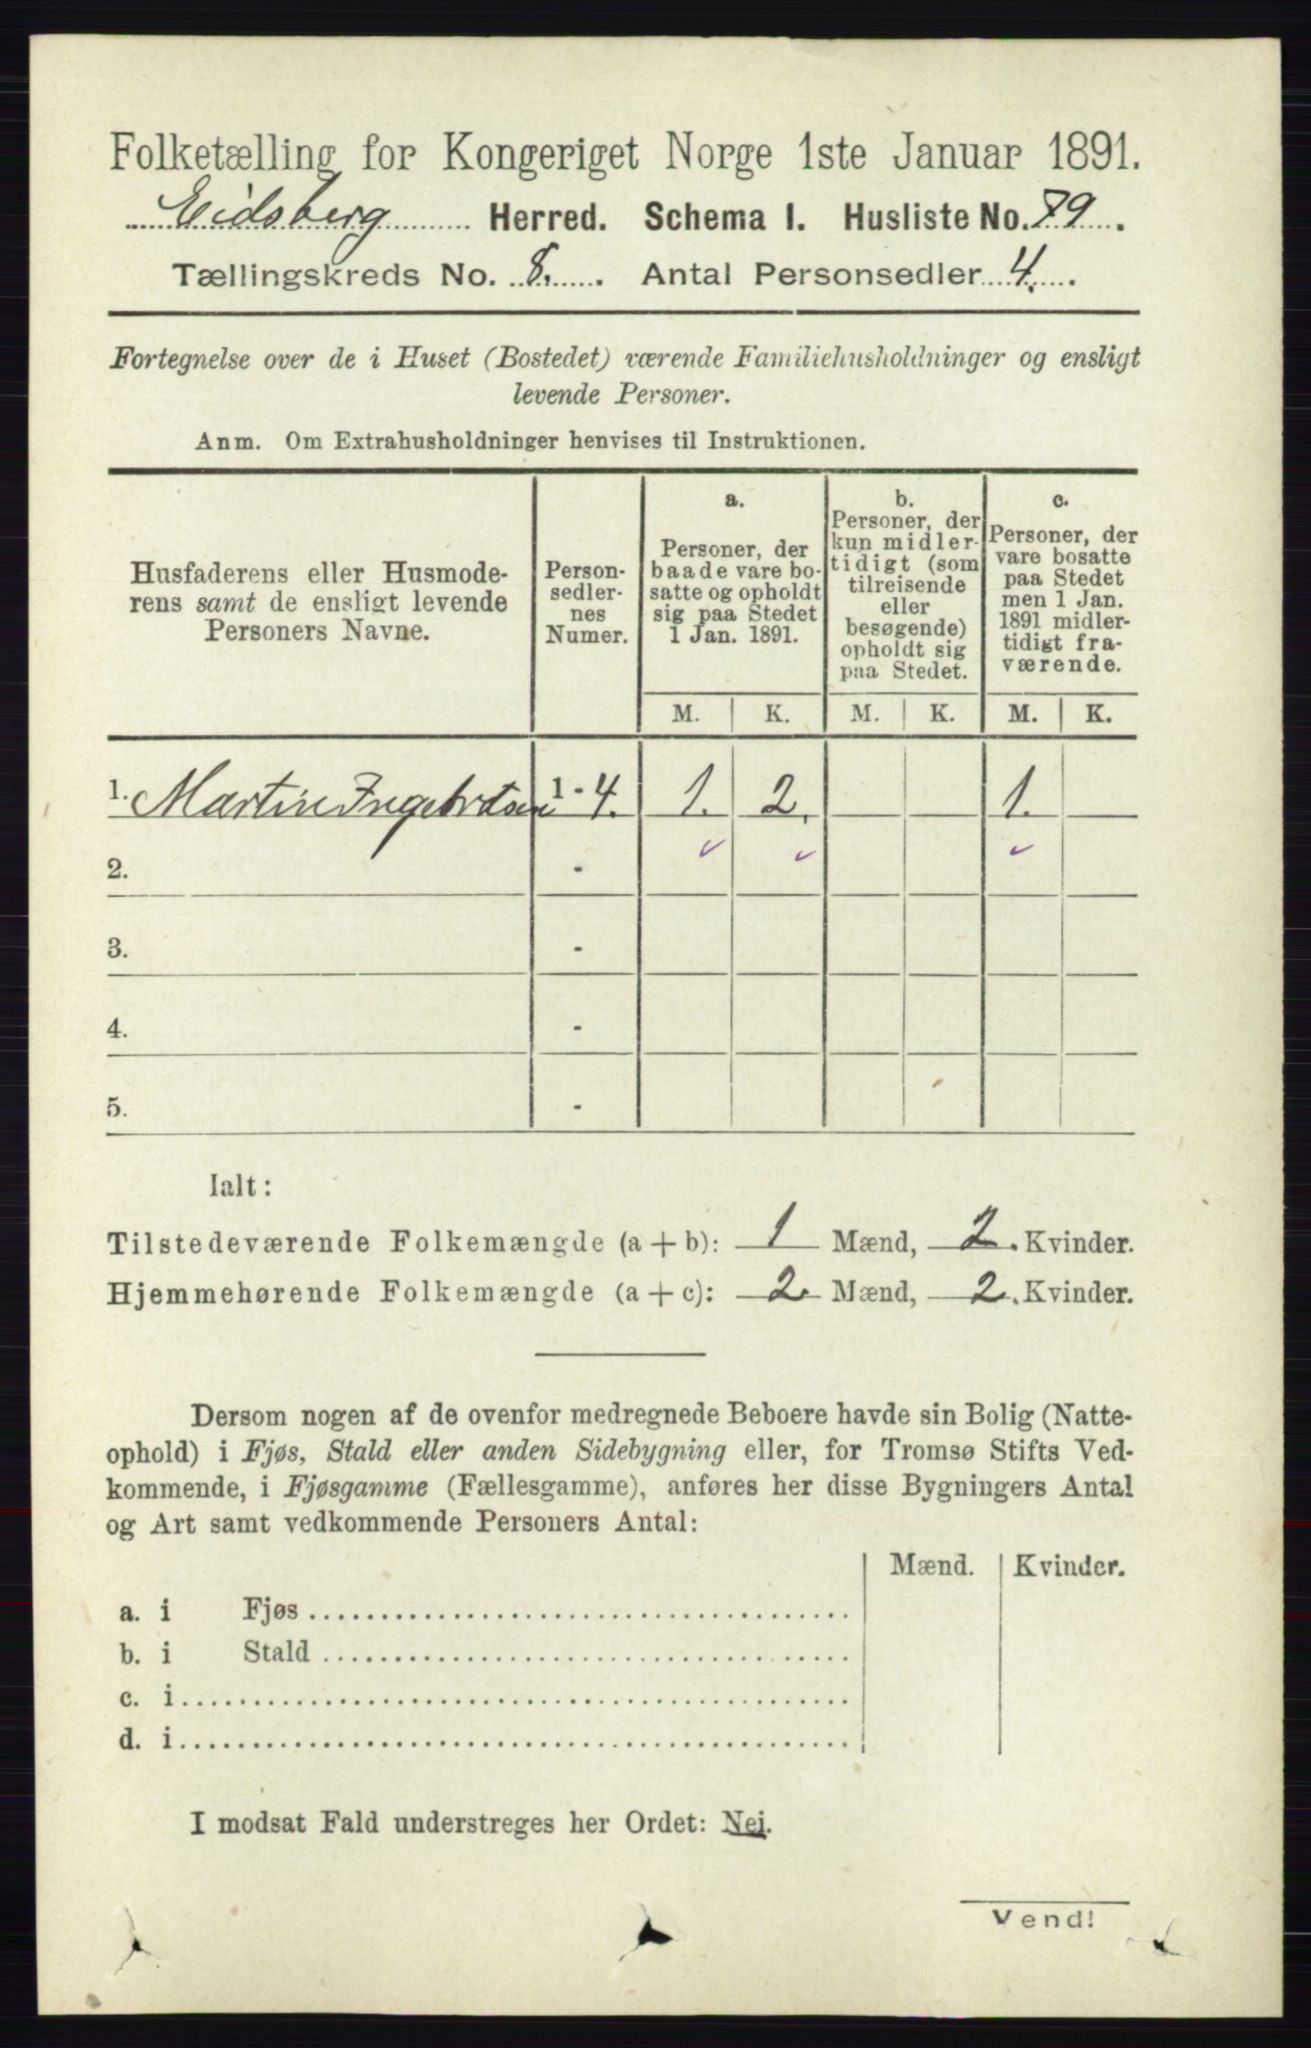 Folketælling for Kongeriget Norge 1ste Januar 1891.
Eidsberg Herred. Schema I. Husliste No. 79.
Tællingskreds No. 8. Antal Personsedler 4.
Fortegnelse over de i Huset (Bostedet) værende Familiehusholdninger og ensligt
levende Personer.
Anm. Om Extrahusholdninger henvises til Instruktionen.
Husfaderens eller Husmode-
rens samt de ensligt levende
Personers Navne.
Person-
sedler-
nes
Numer.
a.
Personer, der
baade vare bo-
satte og opholdt
sig paa Stedet
1 Jan. 1891.
b.
Personer, der
kun midler-
tidigt (som
tilreisende
eller
besøgende)
opholdt sig
paa Stedet.
c.
Personer, der
vare bosatte
paa Stedet
men 1 Jan.
1891 midler-
tidigt fra-
værende.
M. K. M. K. M. K.
1. Martin Ingebretsen 1 - 4. 1. 2. 1.
2. -
3. -
4. -
5. -
Ialt:
Tilstedeværende Folkemængde (a + b): 1 Mænd, 2. Kvinder.
Hjemmehørende Folkemængde (a + c): 2. Mænd, 2. Kvinder.
Dersom nogen af de ovenfor medregnede Beboere havde sin Bolig (Natte-
ophold) i Fjøs, Stald eller anden Sidebygning eller, for Tromsø Stifts Ved-
kommende, i Fjøsgamme (Fællesgamme), anføres her disse Bygningers Antal
og Art samt vedkommende Personers Antal:
Mænd. Kvinder.
a. i Fjøs
b. i Stald
c. i
d. i
I modsat Fald understreges her Ordet: Nei.
Vend!